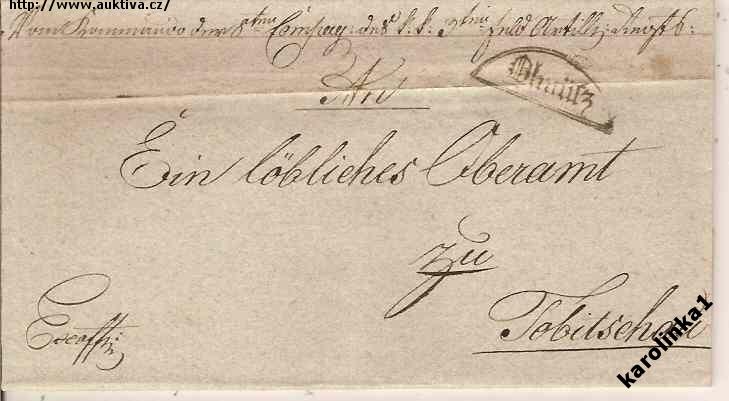 http://www.auktiva.cz/
Vom Kommando der 8ten Compag: des k. k. Feld Artill:
An
Olmütz
Ein löbliches Oberamt
zu
Tobitschau
Exoffi:
karolinka1